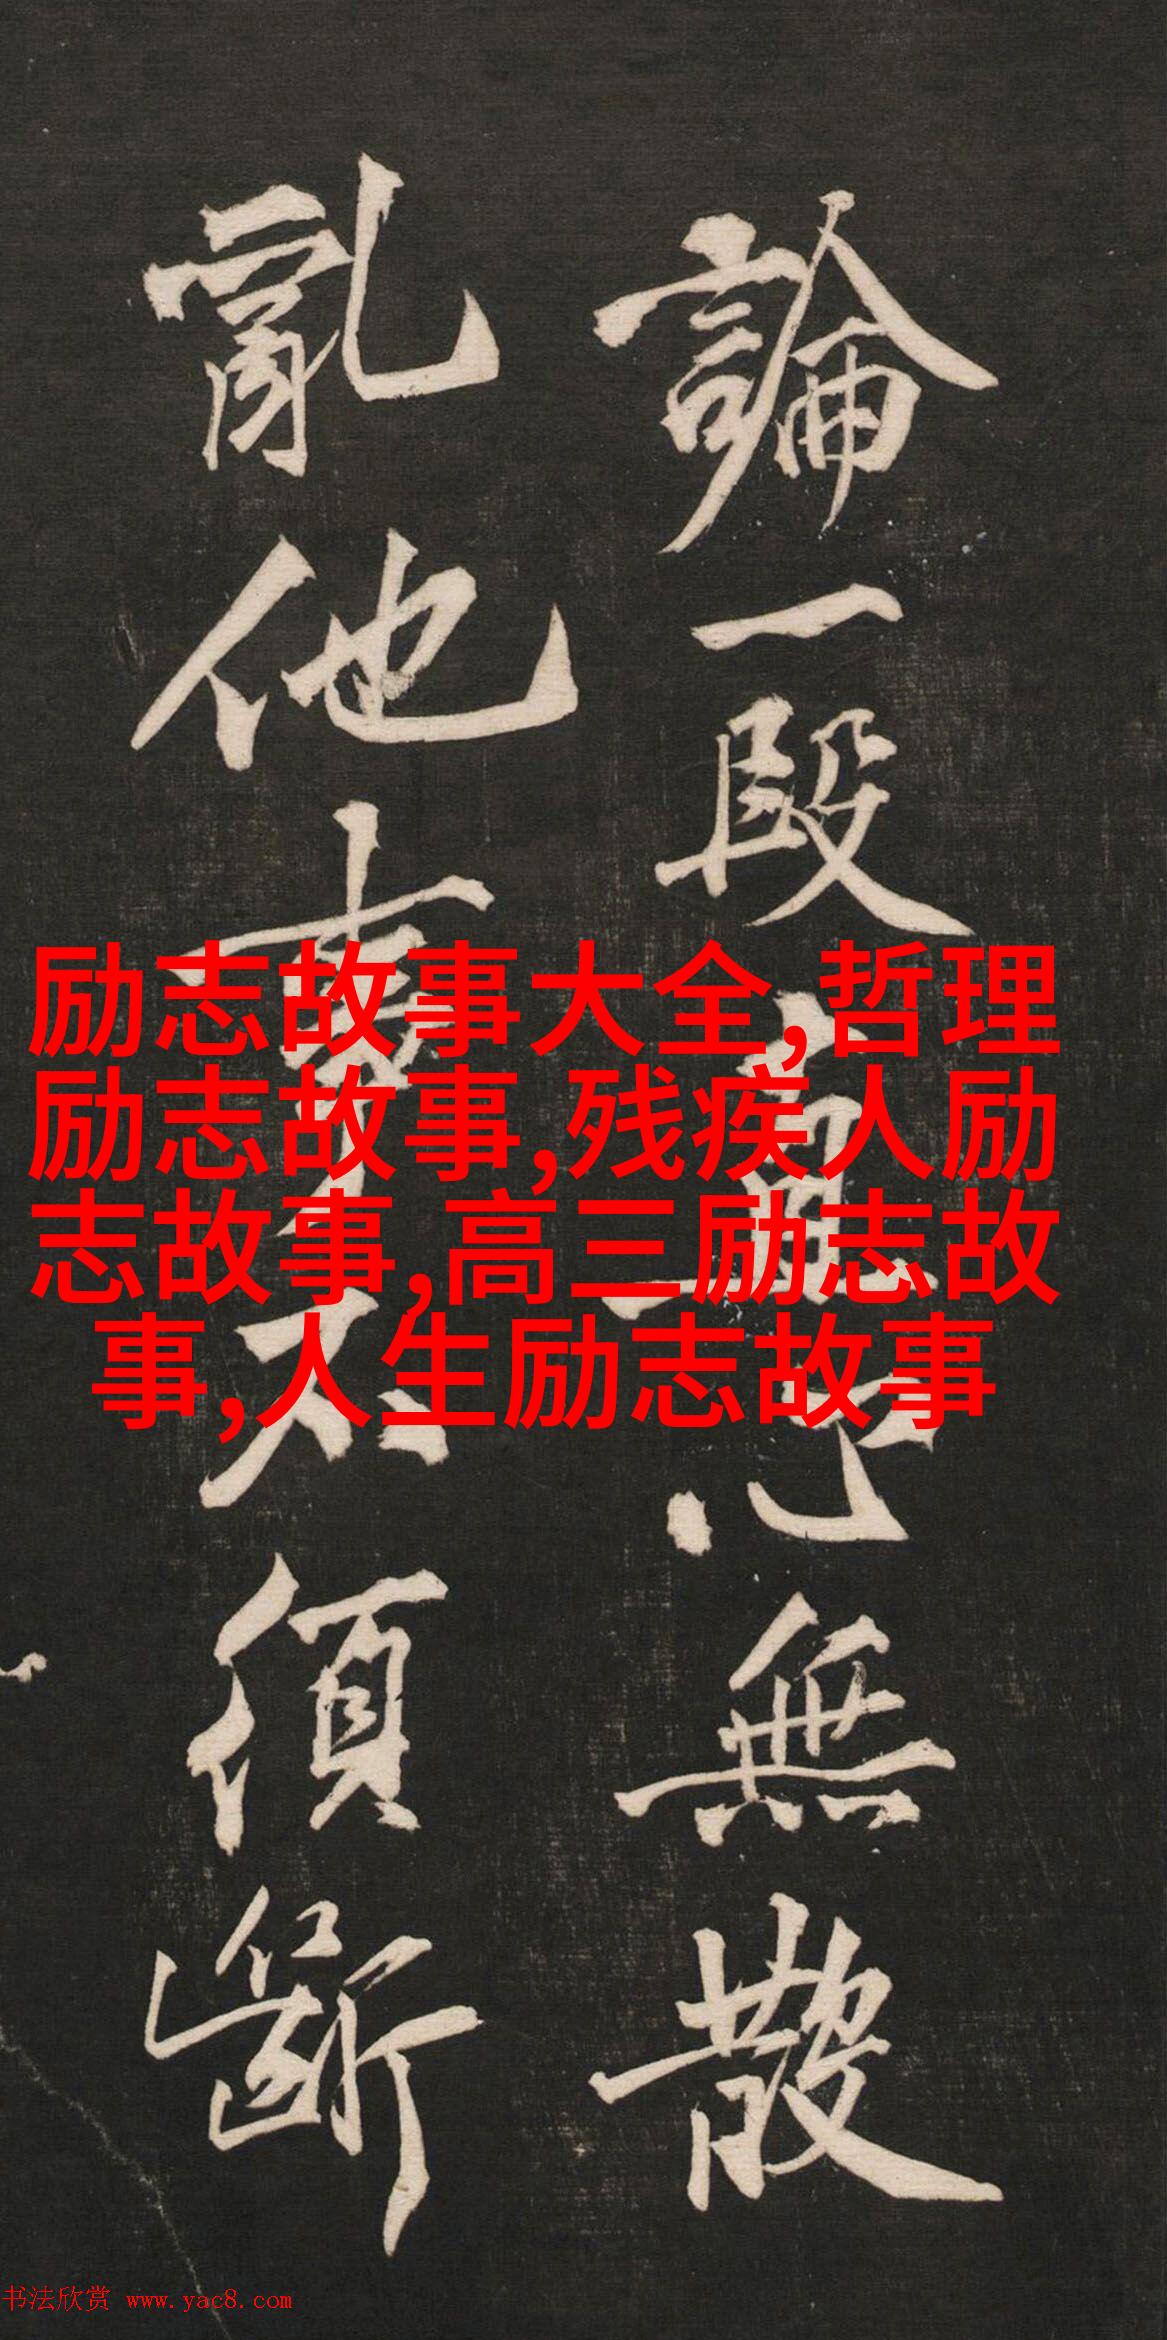 論一段直心無散
亂他事不須斷
励志故事大全,哲理
励志故事,残疾人励
志故事,高三励志故
事,人生励志故事
书法欣赏 www.yac8.com